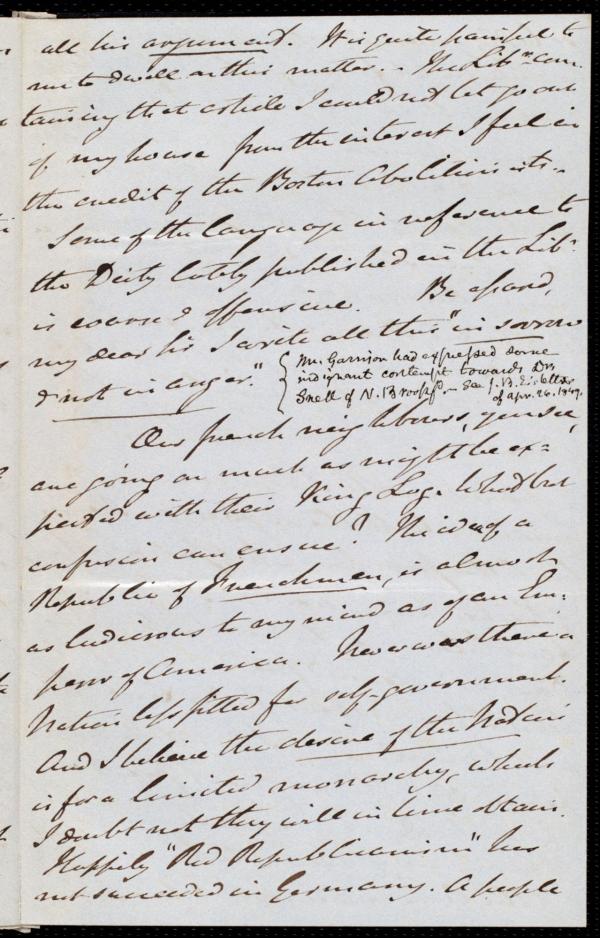 all his argument. It is quite painful to
me to dwell on this matter. - The Libr. con-
taining that article I could not let go out
of my house from the interest I feel in
the credit of the Boston Abolitionists. -
Some of the language in reference to
the Deity lately published in the Libr.
is coarse & offensive. Be assured,
my dear Sir I write all this "in sorrow
& not in anger."
{ Mr. Garrison had expressed some
indignant contempt towards Dr.
Snell of N. Brookfd. - See J. B. E.'s letter
of Apr. 26, 1849.
Our french neighbours, you see,
are going on much as might be ex=
pected with their King Log. What but
confusion can ensue? The idea of a
Republic of Frenchmen, is almost
as ludicrous to my mind as of an Em-
peror of America. Never was there a
Nation less fitted for self-government.
And I believe the desire of the Nation
is for a limited monarchy, which
I doubt not they will in time obtain.
Happily "Red Republicanism" has
not succeeded in Germany. A people